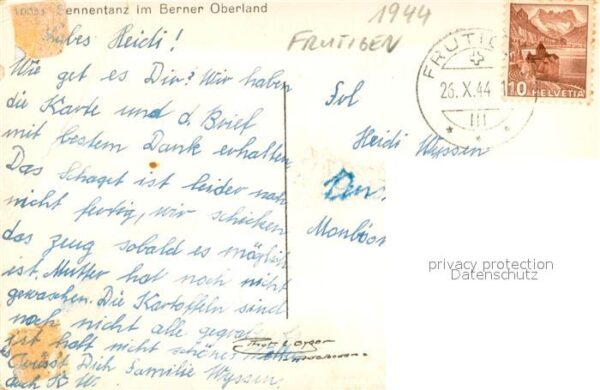 Sennentanz im Berner Oberland
1944
FRUTIGEN
Liebes Heidi!
Wie get es Dir? Wir haben
die Karte und d. Brief
mit bestem Dank erhalten
Das ist leider noch
nicht fertig, wir schicken
das zeug sobald es möglich
ist. Mutter hat noch nicht
gewaschen. Die Kartoffeln sind
noch nicht alle
ist halt nicht schönes
Grüsst Dich Familie Wyssen
FRUTIG
26.X.44
III
10 HELVETIA
Heidi Wyssen
privacy protection
Datenschutz